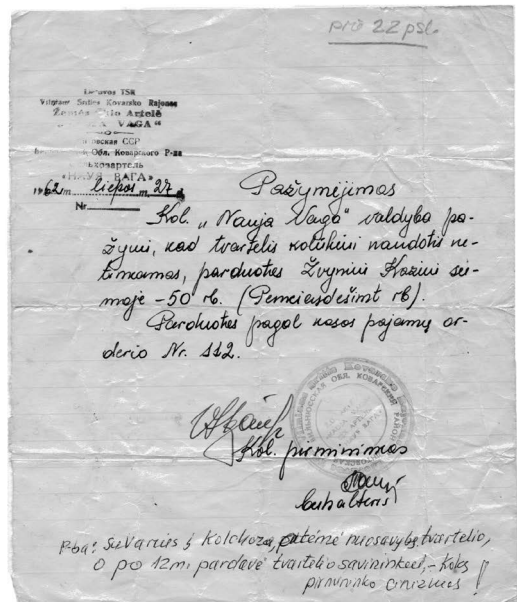 prie 22 psl.
Lietuvos TSR
Vilniaus Srities Kovarsko Rajonas
Žemės Ūkio Artelė
VAGA"
ская ССР
Обл. Коварского Р-на
«НАУЯ ВАГА»
1962 m. liepos m. 27 d.
Nr.
Pažymėjimas
Kol. „Nauja Vaga" valdyba pa-
žymi, kad tvartelis kolūkiui naudotis ne-
tinkamas, parduotas Žvyniui Kaziui sei-
moje - 50 rb. (Penkiasdešimt rb).
Parduotas pagal kasos pajamų or-
derio Nr. 112.
Kol. pirmininkas
buhalteris
P.ba: Suvarius į Kolchozą, atėmė nuosavybę tvartelio,
o po 12m. pardavė tvartelio savininkui, - koks
pirmininko cinizmas!